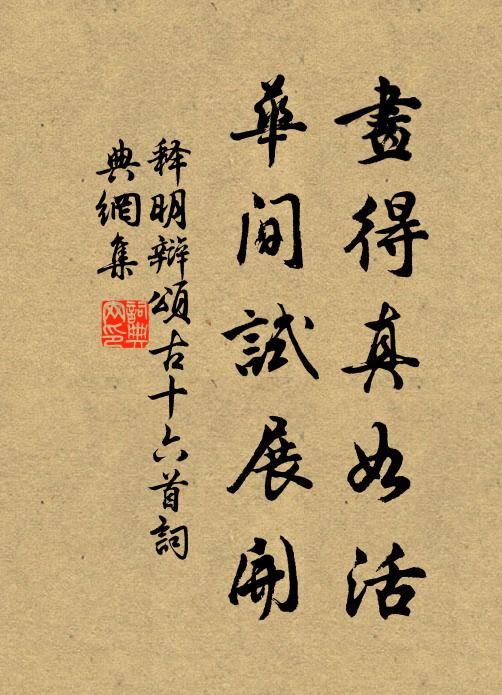 畫得真如活
華間試展開
释明辯頌古十六首詞
典網集
詞典
网印